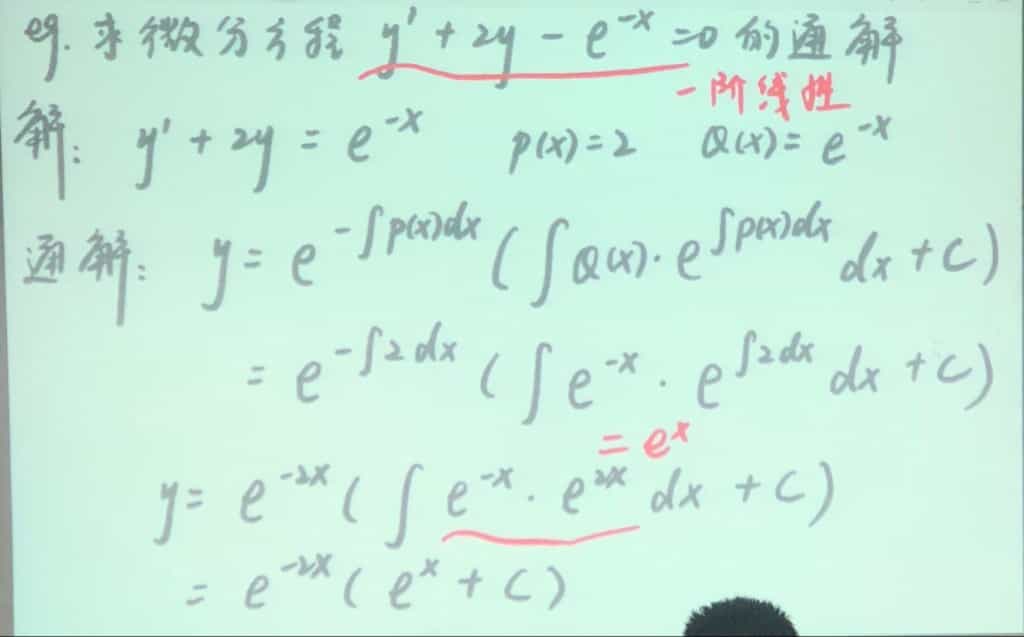 eg. 求微分方程 y' + 2y - e^{-x} = 0 的通解
一阶线性
解: y' + 2y = e^{-x} p(x) = 2 Q(x) = e^{-x}
通解: y = e^{-∫p(x)dx} (∫Q(x)·e^{∫p(x)dx} dx + C)
= e^{-∫2dx} (∫e^{-x}·e^{∫2dx} dx + C)
= e^x
y = e^{-2x} (∫e^{-x}·e^{2x} dx + C)
= e^{-2x} (e^x + C)